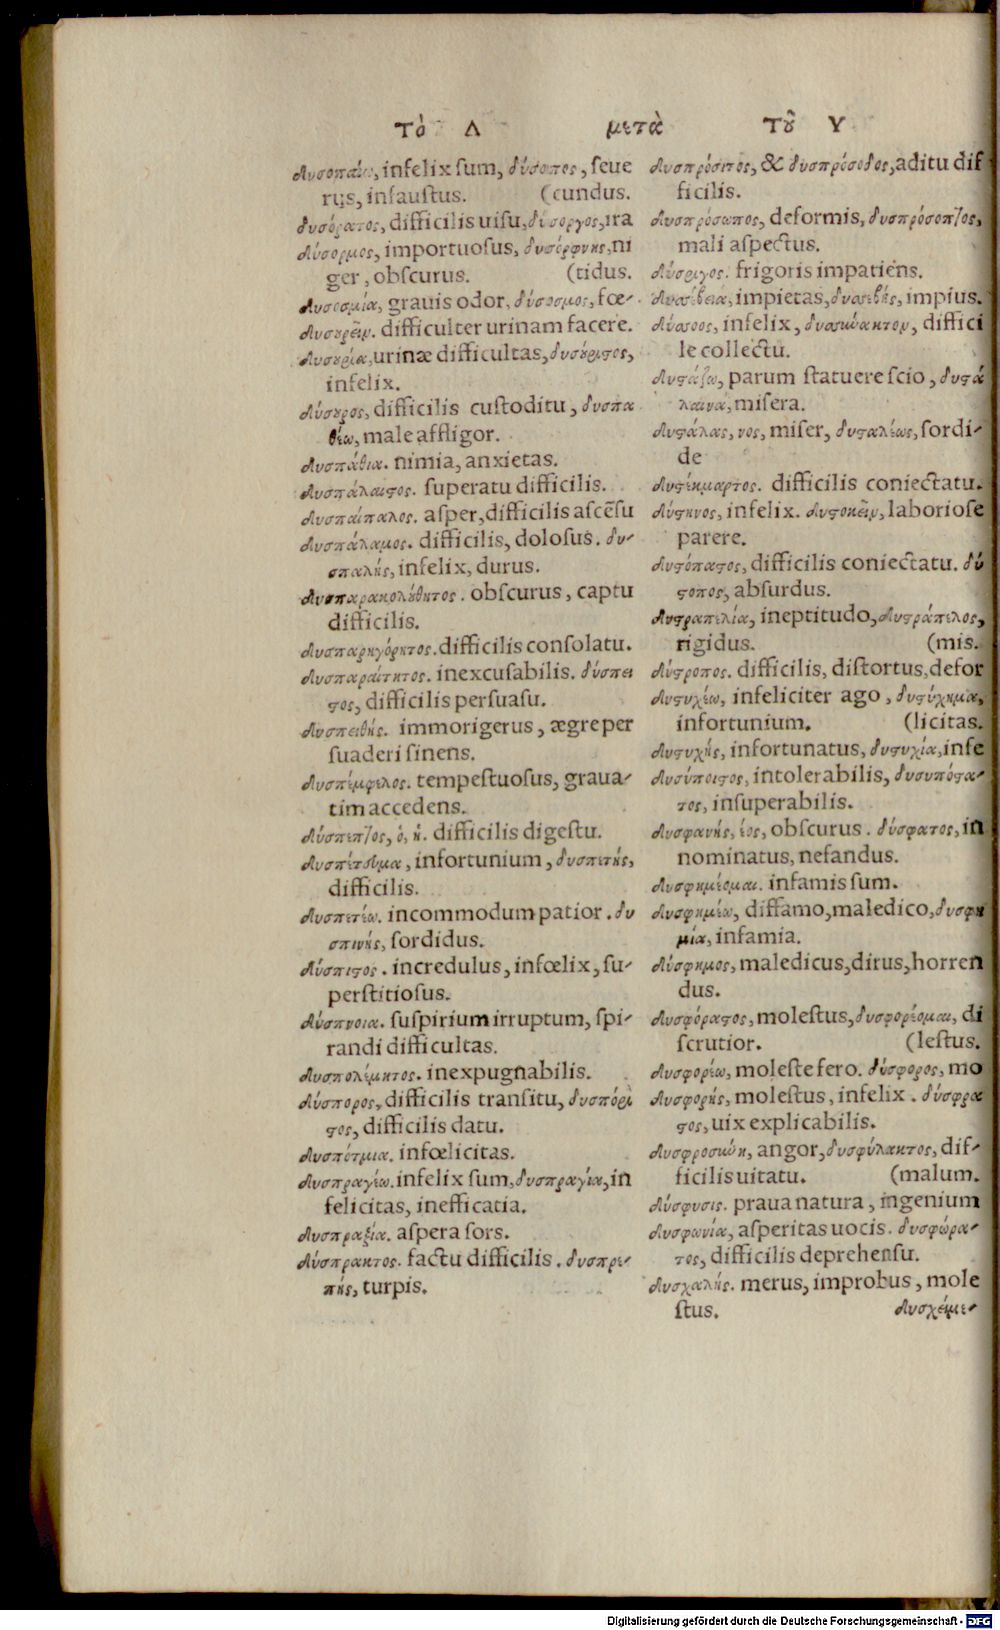 Τὸ Δ μετὰ Τοῦ Υ
Δυσοπαίω, infelix sum, δύσοπος, seue
rus, infaustus. (cundus.
δυσόρατος, difficilis uisu, δύσοργος, ira
Δύσορμος, importuosus, δυσόρφνης, ni
ger, obscurus. (tidus.
Δυσοσμία, grauis odor. δύσοσμος, fœ-
Δυσουρεῖν. difficulter urinam facere.
Δυσουρία, urinæ difficultas, δυσούριστος,
infelix.
Δύσουρος, difficilis custoditu, δυσπα
θέω, male affligor.
Δυσπάθια. nimia, anxietas.
Δυσπάλαιστος. superatu difficilis.
Δυσπαίπαλος. asper, difficilis ascēsu
Δυσπάλαμος. difficilis, dolosus. δυ-
σπαλής, infelix, durus.
Δυσπαρακολούθητος. obscurus, captu
difficilis.
Δυσπαρηγόρητος. difficilis consolatu.
Δυσπαραίτητος. inexcusabilis. δύσπει
στος, difficilis persuasu.
Δυσπειθής. immorigerus, ægre per
suaderi sinens.
Δυσπέμφελος. tempestuosus, graua-
tim accedens.
Δύσπεπτος, ὁ, ἡ. difficilis digestu.
Δυσπέτημα, infortunium, δυσπετής,
difficilis.
Δυσπετέω. incommodum patior. δυ
σπινής, sordidus.
Δύσπιστος. incredulus, infœlix, su-
perstitiosus.
Δύσπνοια. suspirium irruptum, spi-
randi difficultas.
Δυσπολέμητος. inexpugnabilis.
Δύσπορος, difficilis transitu, δυσπόρι
στος, difficilis datu.
Δυσπότμια. infœlicitas.
Δυσπραγέω. infelix sum, δυσπραγία, in
felicitas, inefficatia.
Δυσπραξία. aspera sors.
Δύσπρακτος. factu difficilis. δυσπρε-
πής, turpis.
Δυσπρόσιτος, & δυσπρόσοδος, aditu dif
ficilis.
Δυσπρόσωπος, deformis, δυσπρόσοπτος,
mali aspectus.
Δύσριγος. frigoris impatiens.
Δυσσέβεια, impietas, δυσσεβής, impius.
Δύσσοος, infelix, δυσσύνακτον, diffici
le collectu.
Δυστάζω, parum statuere scio, δυστά
λαινα, misera.
Δυστάλας, νος, miser, δυσταλέως, sordi-
de
Δυστέκμαρτος. difficilis coniectatu.
Δύστηνος, infelix. δυστοκεῖν, laboriose
parere.
Δυστόπαστος, difficilis coniectatu. δύ
στοπος, absurdus.
Δυστραπελία, ineptitudo, Δυστράπελος,
rigidus. (mis.
Δύστροπος. difficilis, distortus, defor
Δυστυχέω, infeliciter ago, δυστύχημα,
infortunium. (licitas.
Δυστυχής, infortunatus, δυστυχία, infe
Δυσύποιστος, intolerabilis, δυσυπόστα-
τος, insuperabilis.
Δυσφανής, έος, obscurus. δύσφατος, in
nominatus, nefandus.
Δυσφημέομαι. infamis sum.
Δυσφημέω, diffamo, maledico, δυσφη
μία, infamia.
Δύσφημος, maledicus, dirus, horren
dus.
Δυσφόραστος, molestus, δυσφορέομαι, di
scrutior. (lestus.
Δυσφορέω, moleste fero. δύσφορος, mo
Δυσφορής, molestus, infelix. δύσφρα
στος, uix explicabilis.
Δυσφροσύνη, angor, δυσφύλακτος, dif-
ficilis uitatu. (malum.
Δύσφυσις. praua natura, ingenium
Δυσφωνία, asperitas uocis. δυσφώρα-
τος, difficilis deprehensu.
Δυσχαλής. merus, improbus, mole
stus. Δυσχέιμε-
Digitalisierung gefördert durch die Deutsche Forschungsgemeinschaft - DFG